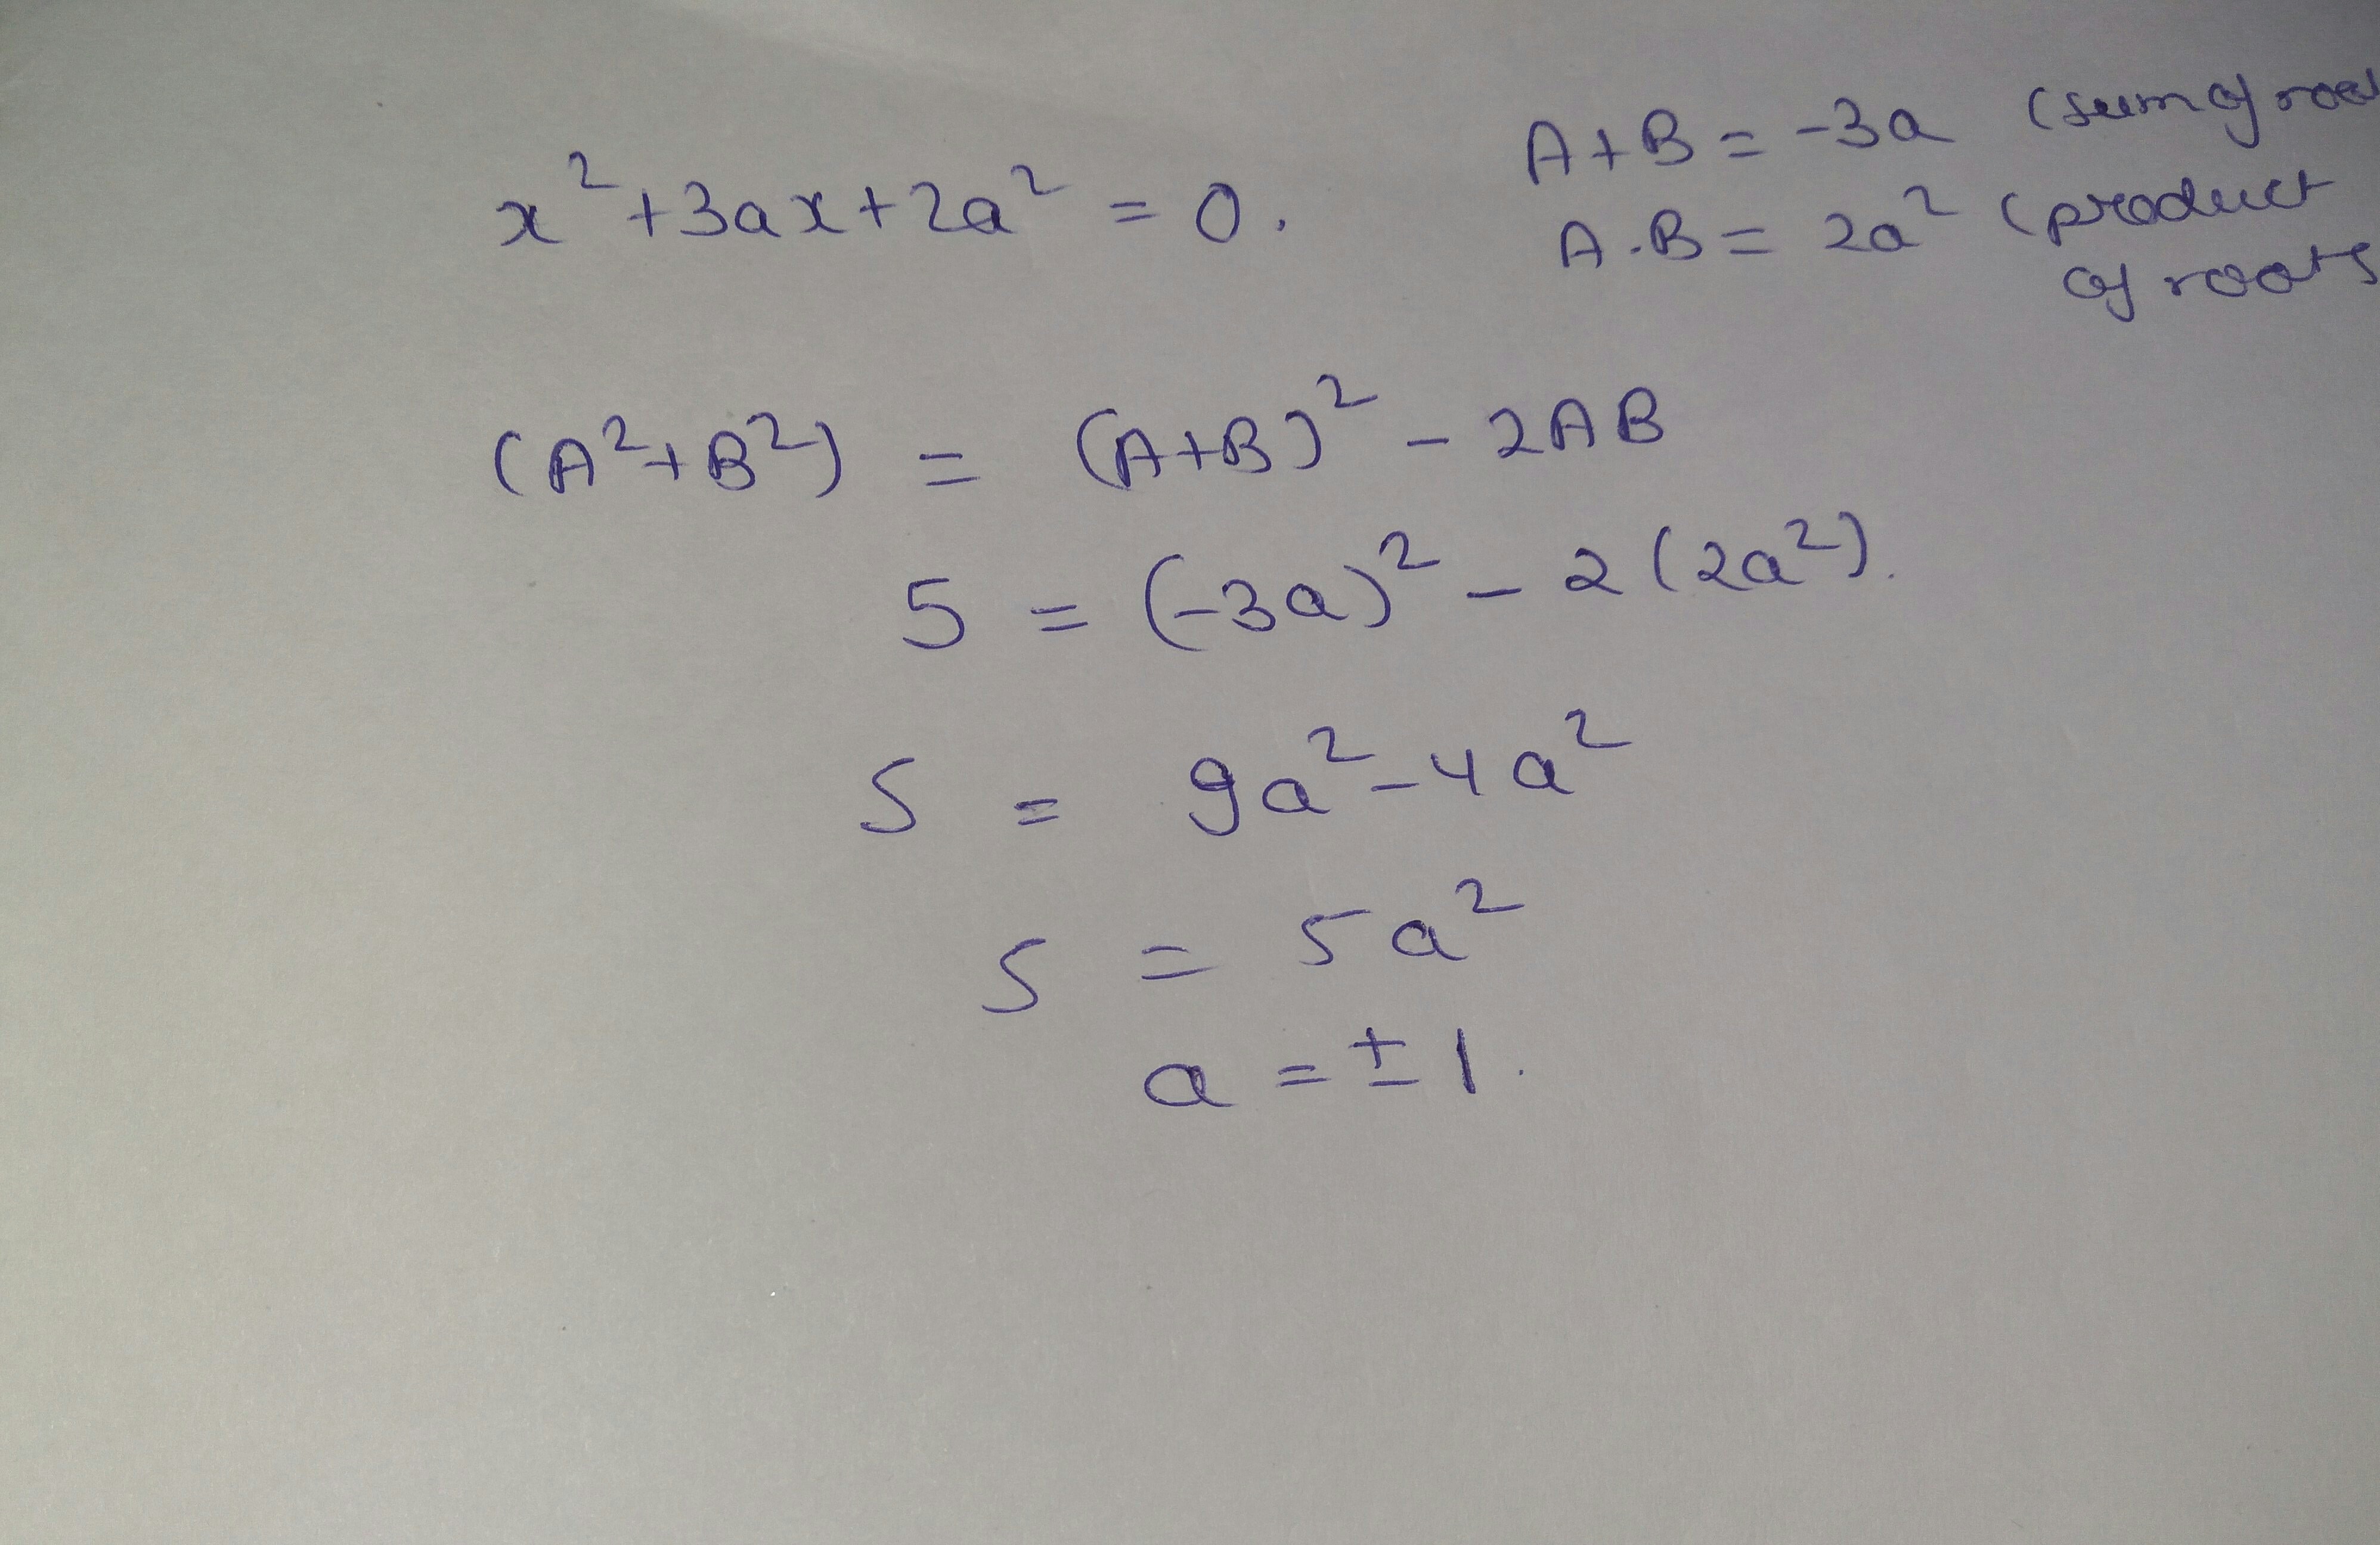 x² + 3ax + 2a² = 0.
A + B = -3a (sum of
A . B = 2a² (product
of roots
(A² + B²) = (A+B)² - 2AB
5 = (-3a)² - 2(2a²).
5 = 9a² - 4a²
5 = 5a²
a = ± 1.